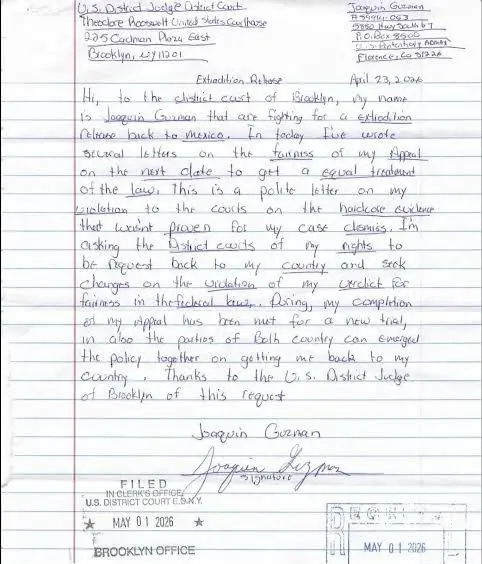 U.S. District Judge District Court
Theodore Roosevelt United States Courthouse
225 Cadman Plaza East
Brooklyn, NY 11201
Joaquin Guzman
5880 Hwy South 67
P.O. Box 8500
Florence, Co 81226
Extradition Release
April 23, 2026
Hi, to the district court of Brooklyn, my name
is Joaquin Guzman that are fighting for a extradition
release back to mexico. In today I've wrote
several letters on the fairness of my Appeal
on the next date to get a equal treatment
of the law. This is a polite letter on my
violation to the courts on the hardcose evidence
that wasn't proven for my case dismiss. I'm
asking the District courts of my rights to
be request back to my country and seek
changes on the violation of my verdict for
fairness in the federal law. During, my completion
of my Appeal has been met for a new trial,
in also the parties of Both country can emerged
the policy together on getting me back to my
country. Thanks to the U.S. District Judge
of Brooklyn of this request
Joaquin Guzman
Signature
FILED
IN CLERK'S OFFICE
U.S. DISTRICT COURT E.D.N.Y.
★ MAY 01 2026 ★
BROOKLYN OFFICE
MAY 01 2026